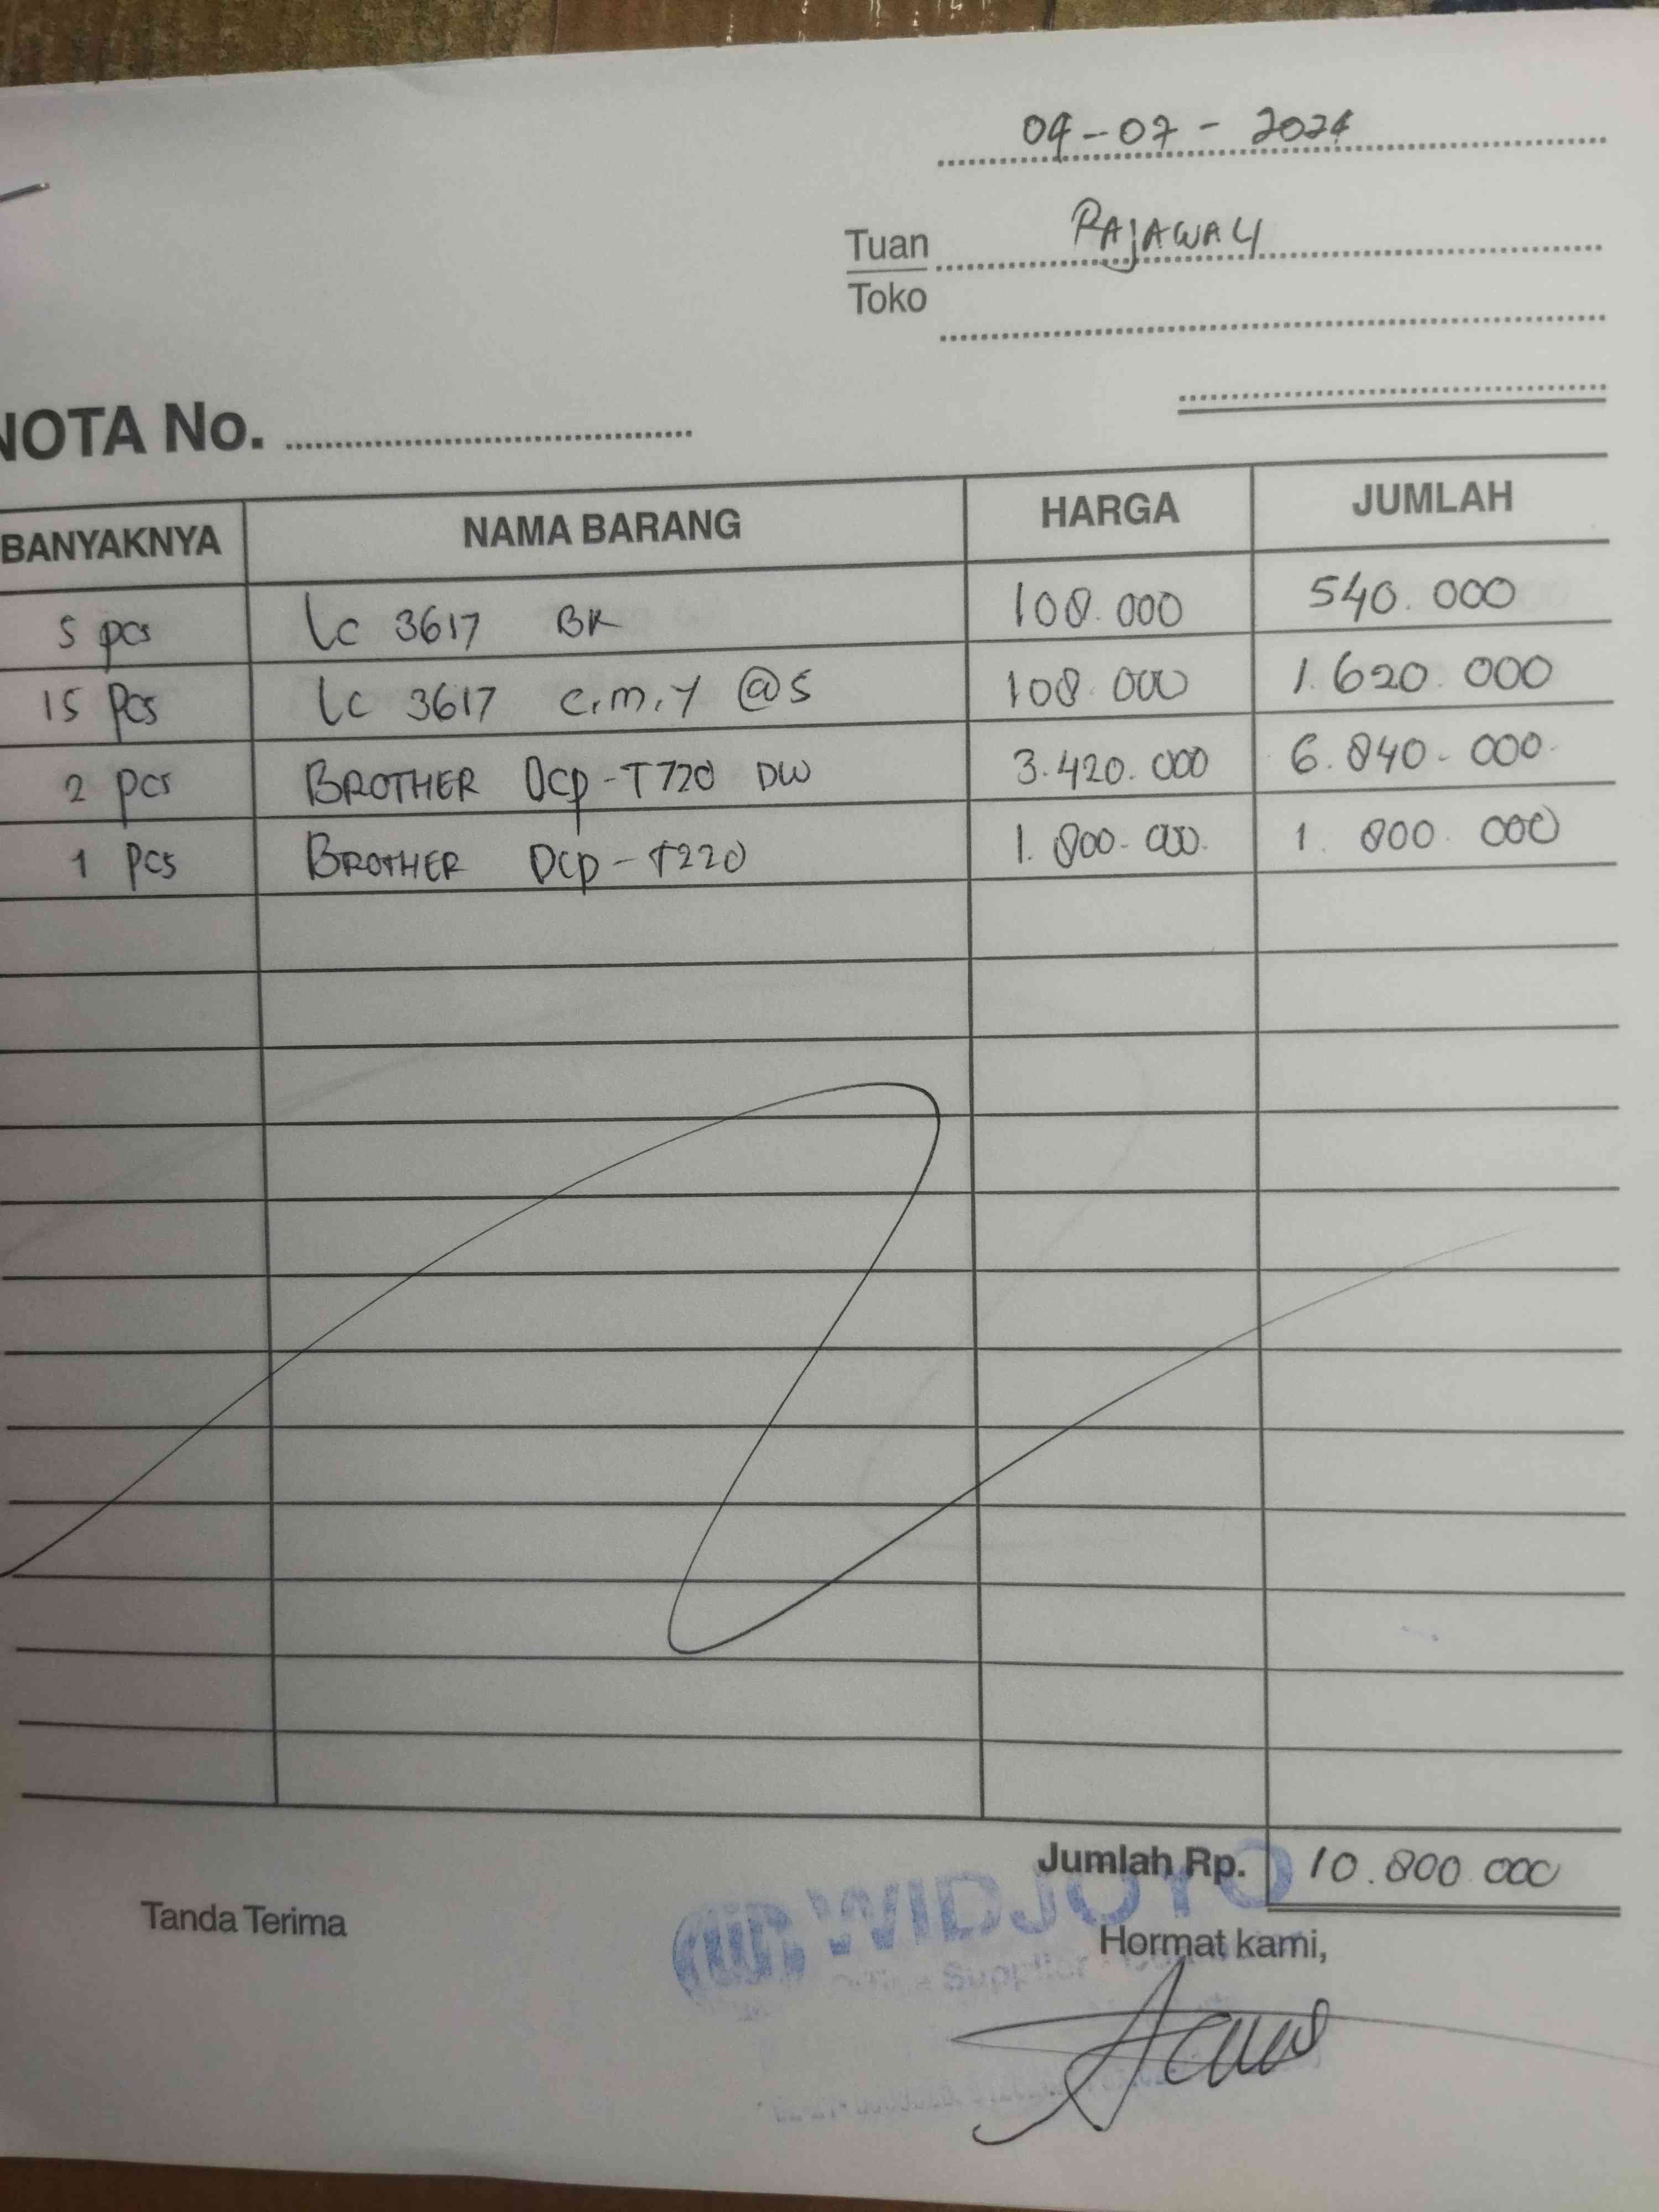 09-07-2024
Tuan RAJAWALI
Toko
NOTA No.
BANYAKNYA NAMA BARANG HARGA JUMLAH
5 pcs LC 3617 BK 108.000 540.000
15 pcs LC 3617 C,M,Y @5 108.000 1.620.000
2 pcs BROTHER DCP-T720 DW 3.420.000 6.840.000
1 pcs BROTHER DCP-T220 1.800.000. 1.800.000
Jumlah Rp. 10.800.000
WIDJOYO
Tanda Terima Hormat kami,
Supplier